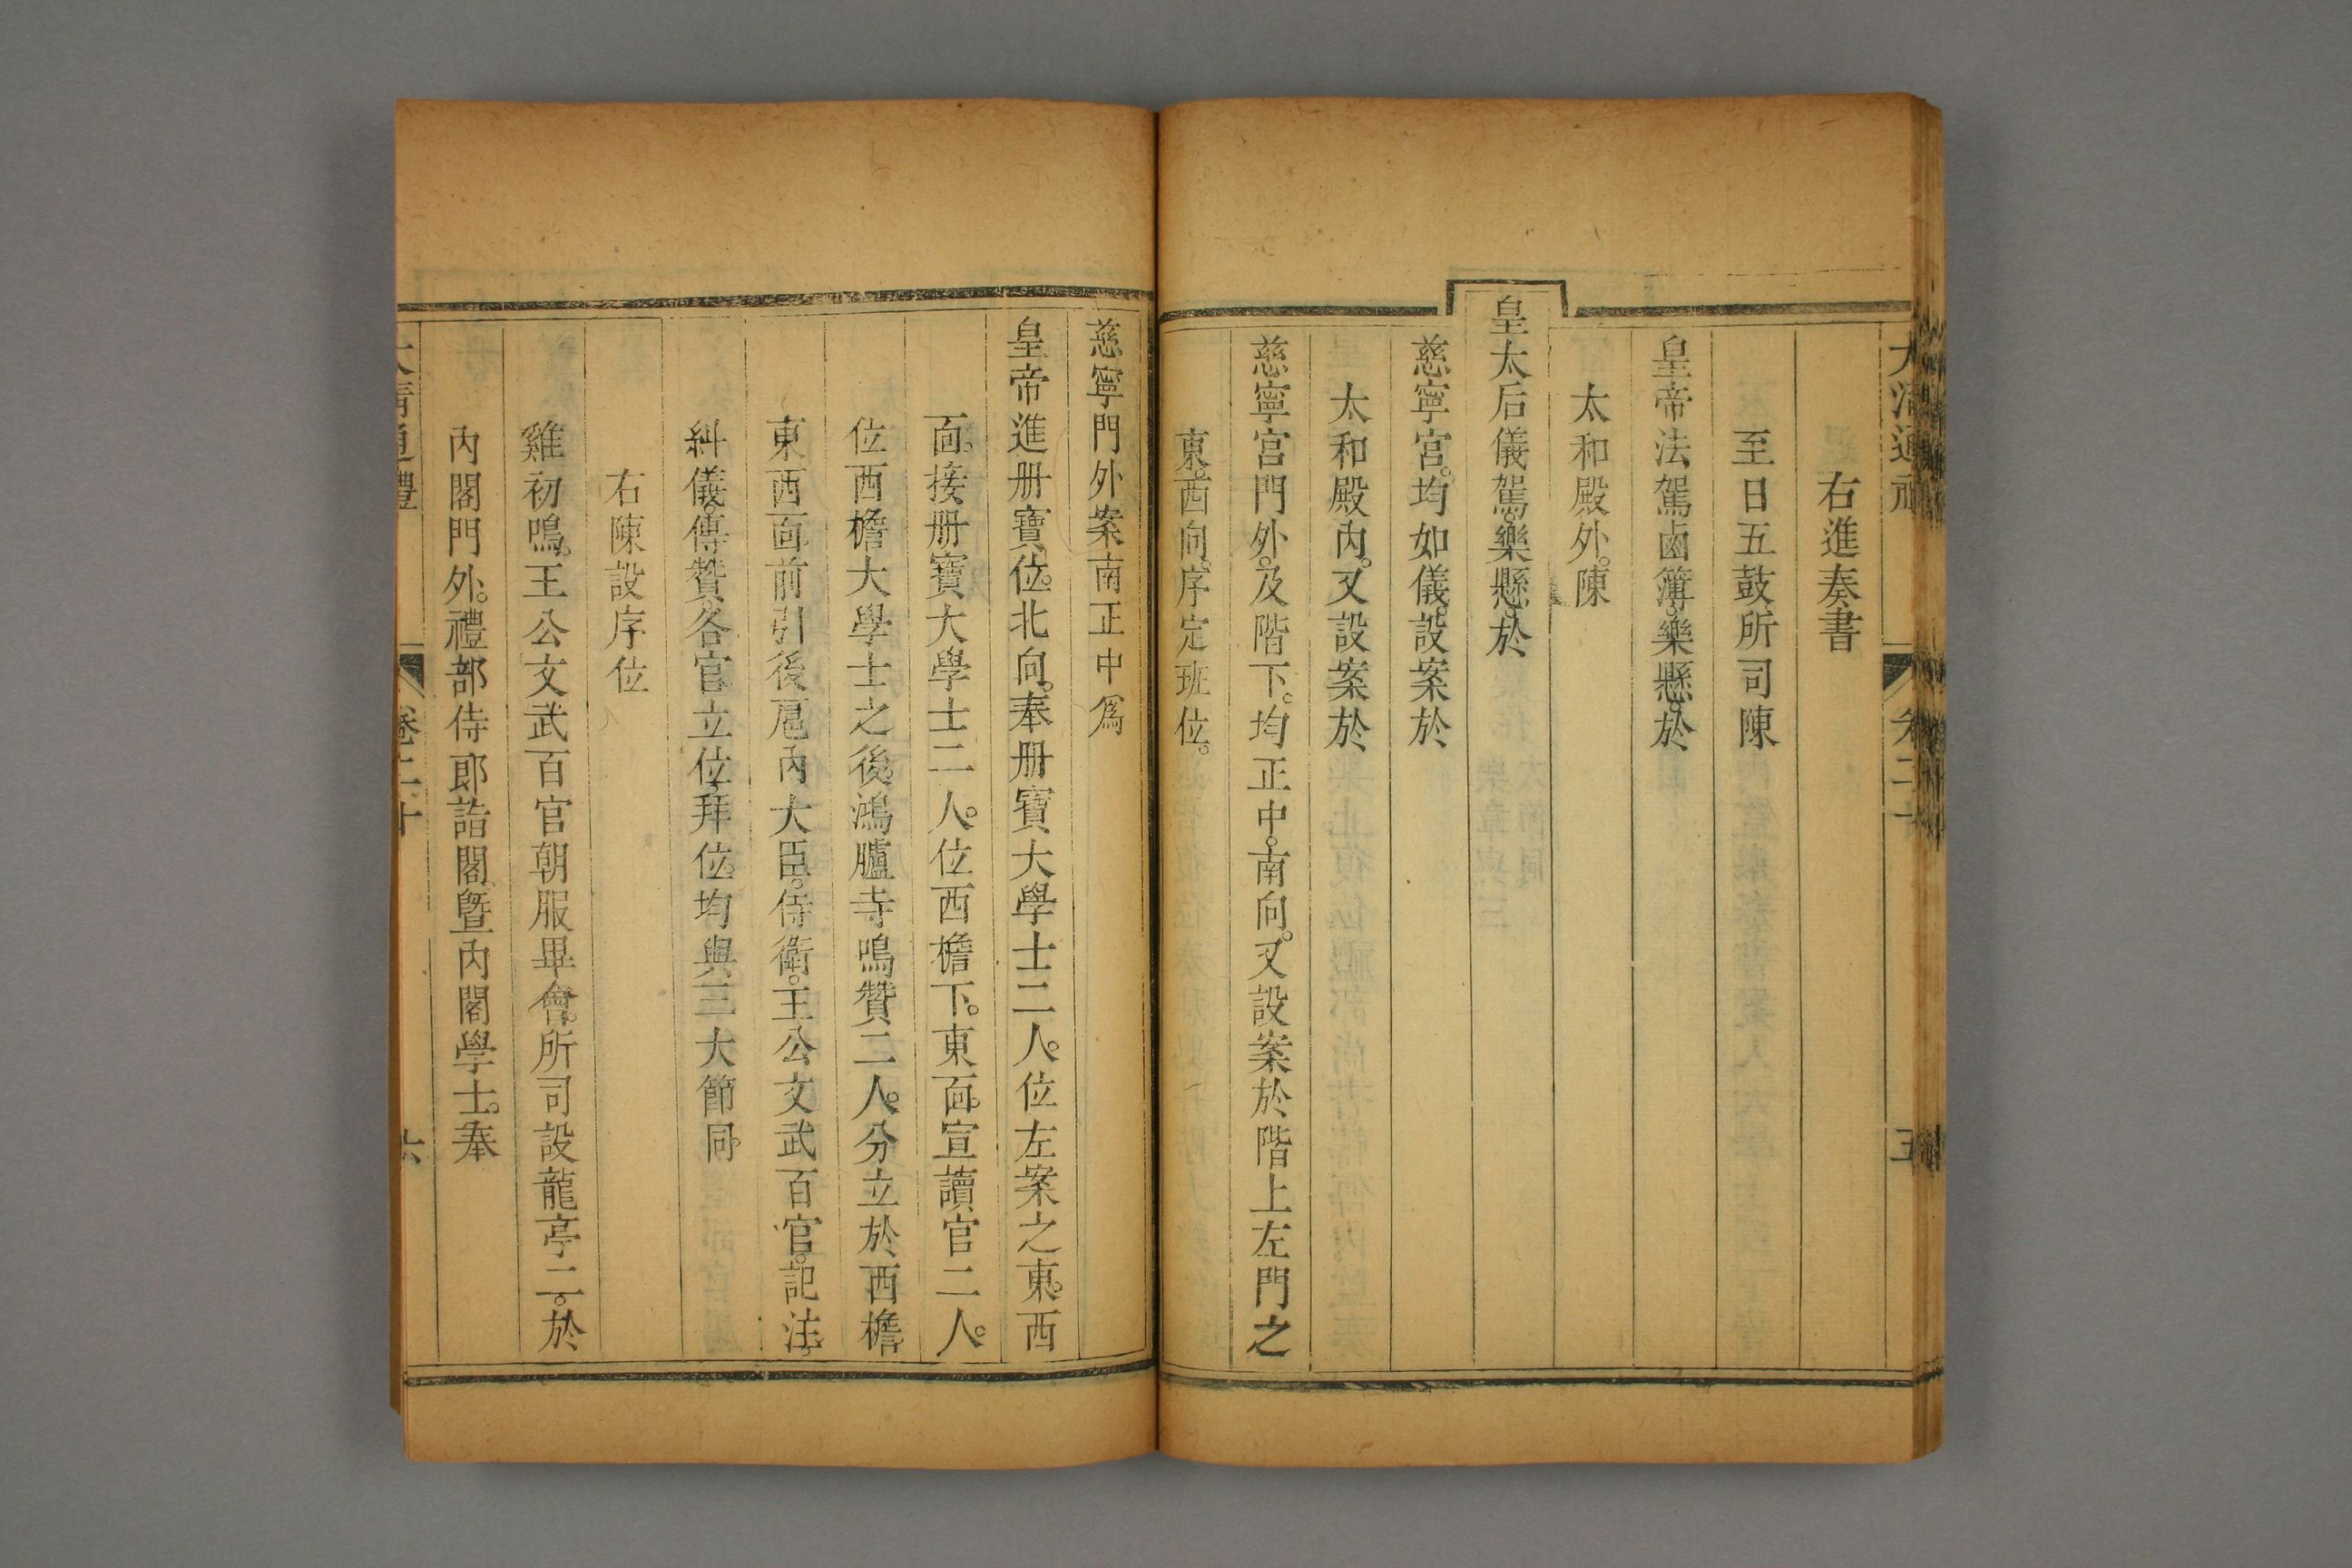 大清通禮 卷二十 五
右進奏書
至日五鼓所司陳
皇帝法駕鹵簿。樂懸。於
太和殿外。陳
皇太后儀駕。樂懸。於
慈寧宮。均如儀。設案於
太和殿內。又設案於
慈寧宮門外。及階下。均正中。南向。又設案於階上左門之
東。西向。序定班位。
慈寧門外案南正中爲
皇帝進册寶位。北向。奉册寶大學士二人。位左案之東。西
面。接册寶大學士二人。位西檐下。東面。宣讀官二人。
位西檐大學士之後。鴻臚寺鳴贊二人。分立於西檐。
東西面。前引後扈內大臣。侍衞。王公文武百官。記注。
糾儀。傳贊。各官立位。拜位。均與三大節同。
右陳設序位
雞初鳴。王公文武百官朝服畢會。所司設龍亭二。於
內閣門外。禮部侍郞詣閣。曁內閣學士。奉
大清通禮 卷二十 六